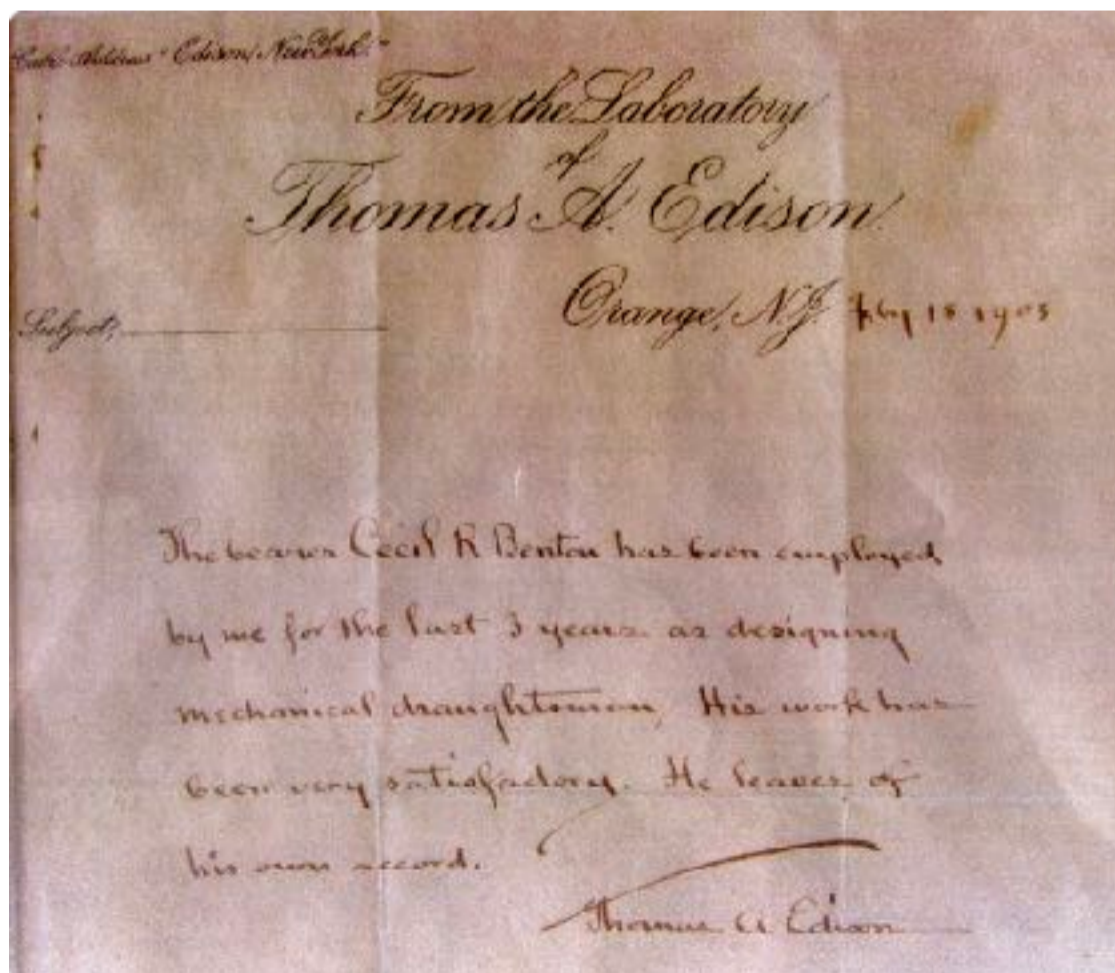 Cable Address "Edison, New York"
From the Laboratory
of
Thomas A. Edison.
Orange, N.J. 18 190
Subject,
The bearer Cecil R Benton has been employed
by me for the last 3 years as designing
mechanical draughtsman, His work has
been very satisfactory. He leaves of
his own record.
Thomas A Edison